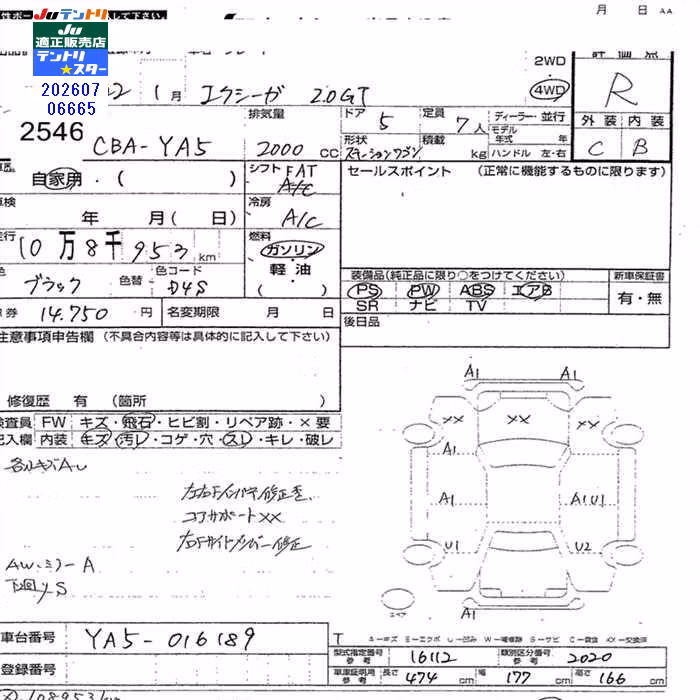 月 日 AA
Juテントリ
Ju
適正販売店
テントリ
★スター
202607
06665
2546
22 1月 エクシーガ 2.0GT
2WD
4WD
R
外装 内装
C B
CBA-YA5
排気量
2000 CC
ドア 5 定員 7人
ディーラー・並行
モデル年式 年
形状 ステーションワゴン 積載 kg ハンドル 左・右
自家用・( )
シフト FAT
A/C
セールスポイント (正常に機能するものに限ります)
年 月( 日)
冷房
A/C
10万8千953km
燃料
ガソリン
軽油
( )
ブラック 色替 色コード D4S
装備品(純正品に限り○をつけてください) 新車保証書
PS PW ABS エアB
SR ナビ TV
有・無
券 14.750円 名変期限 月 日
後日品
注意事項申告欄 (不具合内容等は具体的に記入して下さい)
修復歴 有 (箇所 )
検査員 FW キズ・飛石・ヒビ割・リペア跡・×要
記入欄 内装 キズ・汚レ・コゲ・穴・スレ・キレ・破レ
左右Fインパネ修正済
コアサポートXX
右Fサイドメンバー修正
AW・ミラーA
下回りS
A1 A1
XX XX XX
A1 A1
A1 A1U1
U1 U2
A1
車台番号 YA5-016189
登録番号
型式指定番号 参考 16112 類別区分番号 参考 2020
車庫証明用 参考 長さ 474cm 幅 177cm 高さ 166cm